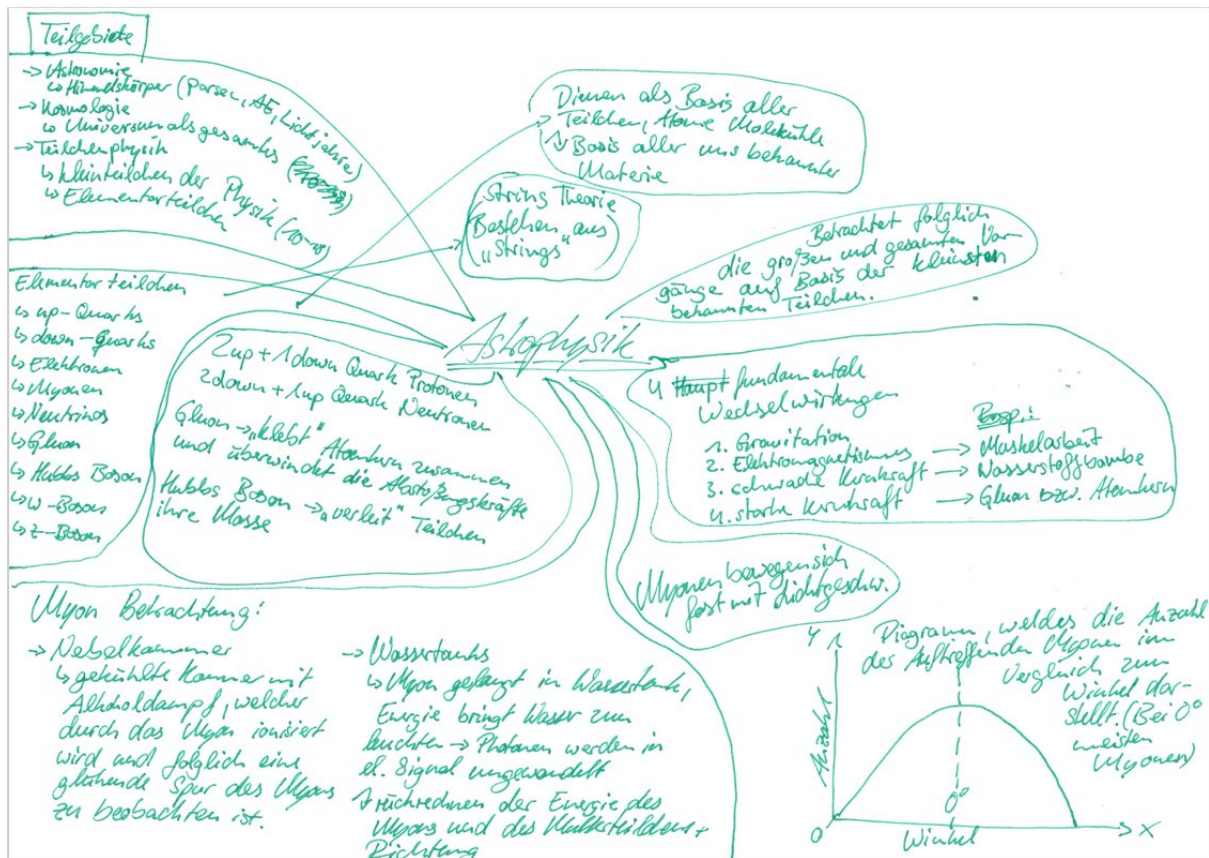 Teilgebiete
→ Astronomie
↳ Himmelskörper (Parsec, AE, Lichtjahre)
→ Kosmologie
↳ Universum als gesamtes
→ Teilchenphysik
↳ kleinteilchen der Physik
↳ Elementarteilchen
Dienen als Basis aller
Teilchen, Atome Moleküle
↳ Basis aller uns bekannter
Materie
String Theorie
Bestehen aus
„Strings"
Betrachtet folglich
die großen und gesamten Vor-
gänge auf Basis der kleinsten
bekannten Teilchen.
Astrophysik
Elementarteilchen
↳ up-Quarks
↳ down-Quarks
↳ Elektronen
↳ Myonen
↳ Neutrinos
↳ Gluon
↳ Hubbs Boson
↳ W-Boson
↳ Z-Boson
2up + 1down Quark Protonen
2down + 1up Quark Neutronen
Gluon → „klebt" Atomkern zusammen
und überwindet die Abstoßungskräfte
Hubbs Boson → „verleit" Teilchen
ihre Masse
4 Haupt fundamentale
Wechselwirkungen
Bsp.:
1. Gravitation
2. Elektromagnetismus → Muskelarbeit
3. schwache Kernkraft → Wasserstoffbombe
4. starke Kernkraft → Gluon bzw. Atomkern
Myonen bewegen sich
fast mit Lichtgeschw.
Myon Betrachtung:
→ Nebelkammer
↳ gekühlte Kammer mit
Alkoholdampf, welcher
durch das Myon ionisiert
wird und folglich eine
glühende Spur des Myons
zu beobachten ist.
→ Wassertanks
↳ Myon gelangt in Wassertank,
Energie bringt Wasser zum
leuchten → Photonen werden in
el. Signal umgewandelt
↳ rückrechnen der Energie des
Myons und des Mutterteilchens +
Richtung
Diagramm, welches die Anzahl
der Auftreffenden Myonen im
Vergleich zum
Winkel dar-
stellt. (Bei 0°
meisten
Myonen)
Y
Anzahl
0°
0
Winkel
X